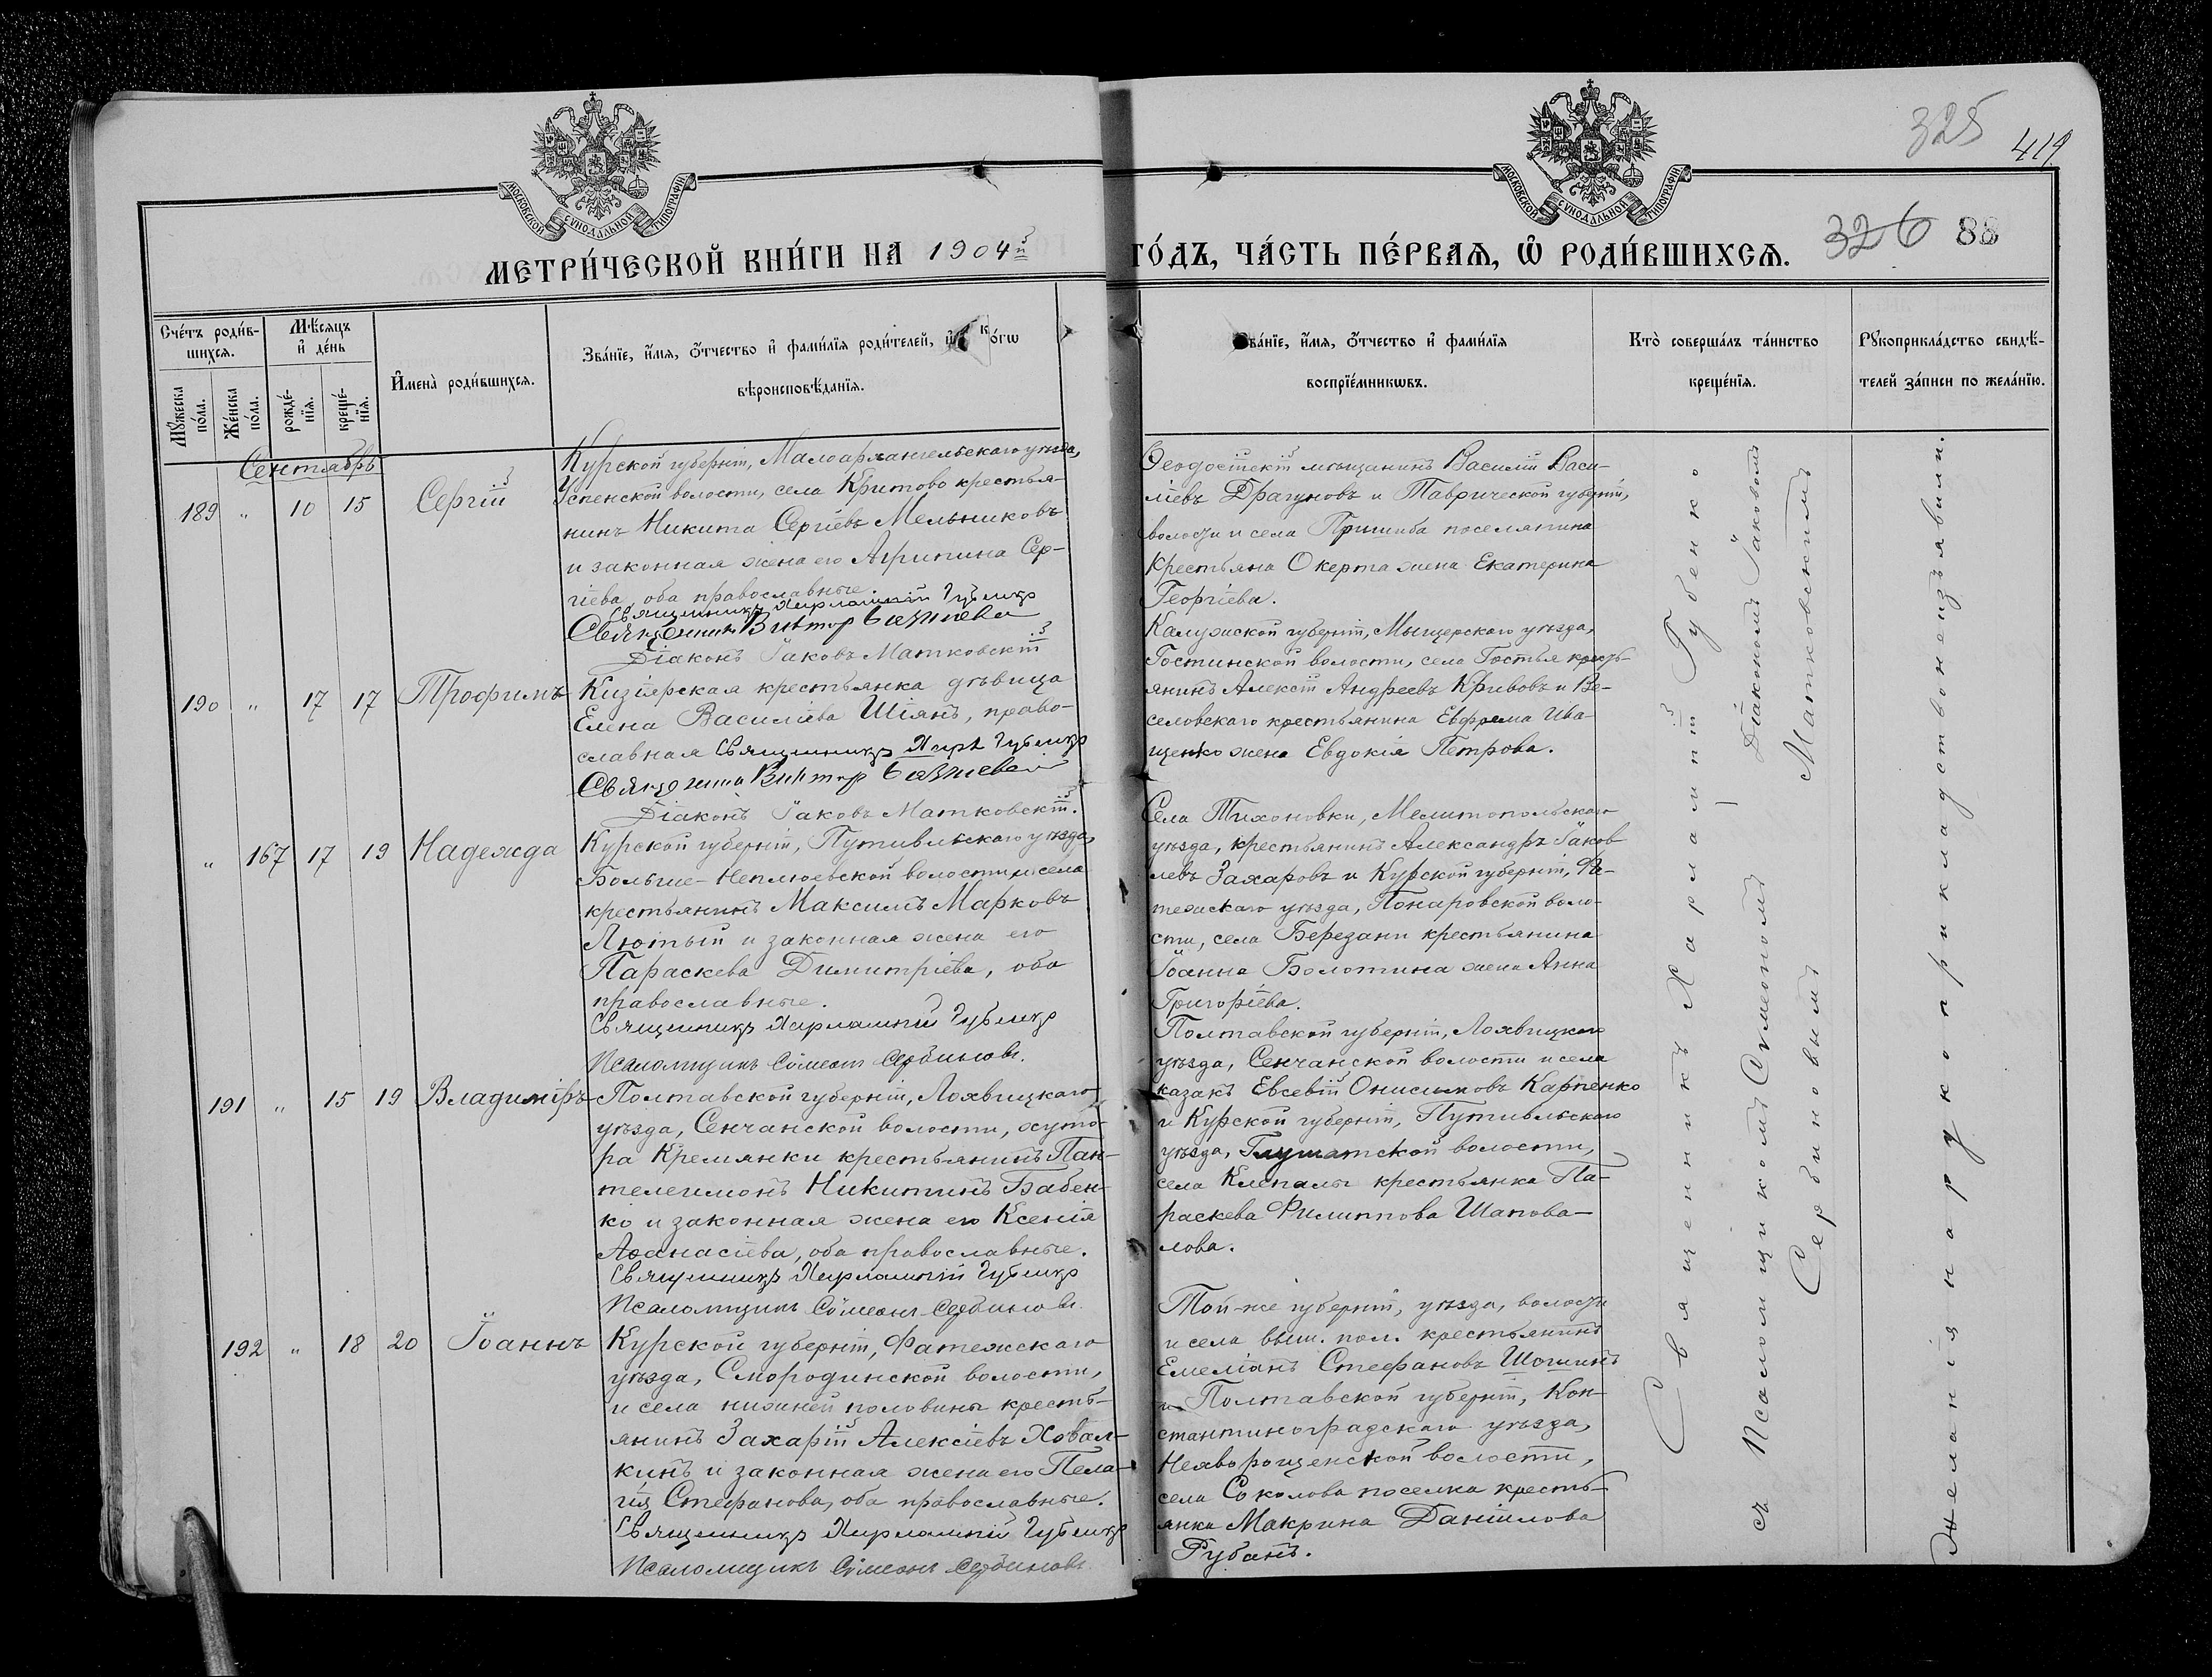 325
419
МОСКОВСКОЙ СѴНОДАЛЬНОЙ ТИПОГРАФІИ
МОСКОВСКОЙ СѴНОДАЛЬНОЙ ТИПОГРАФІИ
МЕТРИ́ЧЕСКОЙ КНИ́ГИ НА 1904й
ГО́ДЪ, ЧА́СТЬ ПЕ́РВАѦ, Ѡ҆ РОДИ́ВШИХСѦ.
326 88
Сче́тъ роди́в-
шихсѧ.
Мꙋ́жеска по́ла.
Же́нска по́ла.
Мѣ́сѧцъ
и҆ де́нь
рожде́-
нїѧ.
креще́-
нїѧ.
И҆мена̀ роди́вшихсѧ.
Зва́нїе, и҆́мѧ, ѻ҆́тчество и҆ фами́лїѧ роди́телей, и҆ ко́гѡ
вѣроисповѣ́данїѧ.
Зва́нїе, и҆́мѧ, ѻ҆́тчество и҆ фами́лїѧ
воспрїе́мникѡвъ.
Кто̀ соверша́лъ та́инство
креще́нїѧ.
Рꙋкоприкла́дство свидѣ́-
телей за́писи по жела́нїю.
Сентябрь
189 " 10 15 Сергій
Курской губерніи, Малоархангельскаго уѣзда,
Успенской волости, села Критово крестья-
нинъ Никита Сергіевъ Мельниковъ
и законная жена его Агрипина Сер-
гіева, оба православные.
Священникъ Харлампій Губенко
Священникъ Виктор
Діаконъ Іаковъ Матковскій
Ѳеодосійскій мѣщанинъ Василій Васи-
ліевъ Драгуновъ и Таврической губерніи,
волости и села Пришиба поселянина
Крестьяна Окерта жена Екатерина
Георгіева.
190 " 17 17 Трофимъ
Кизіярская крестьянка дѣвица
Елена Василіева Шіянъ, право-
славная Священникъ Харл Губенко
Священник Виктор
Діаконъ Іаковъ Матковскій.
Калужской губерніи, Мыщерскаго уѣзда,
Гостинской волости, села Гостья кресть-
янинъ Алексій Андреевъ Кривовъ и Ве-
селовскаго крестьянина Евфрема Ива-
щенко жена Евдокія Петрова.
" 167 17 19 Надежда
Курской губерніи, Путивльскаго уѣзда,
Больше-Неплюевской волости и села
крестьянинъ Максимъ Марковъ
Лютый и законная жена его
Параскева Димитріева, оба
православные.
Священникъ Харлампій Губенко
Псаломщикъ Сѵмеонъ Сербиновъ.
Села Тихоновки, Мелитопольскаго
уѣзда, крестьянинъ Александръ Іаков-
левъ Захаровъ и Курской губерніи, Фа-
тежскаго уѣзда, Понаровской воло-
сти, села Березани крестьянина
Іоанна Болотина жена Анна
Григоріева.
191 " 15 19 Владиміръ
Полтавской губерніи, Лохвицкаго
уѣзда, Сенчанской волости, хуто-
ра Кремянки крестьянинъ Пан-
телеимонъ Никитинъ Бабен-
ко и законная жена его Ксенія
Аѳанасіева, оба православные.
Священникъ Харлампій Губенко
Псаломщикъ Сѵмеонъ Сербиновъ.
Полтавской губерніи, Лохвицкаго
уѣзда, Сенчанской волости и села
казакъ Евсевій Онисимовъ Карпенко
и Курской губерніи, Путивльскаго
уѣзда, Глушатской волости,
села Клепалы крестьянка Па-
раскева Филиппова Шапова-
лова.
192 " 18 20 Іоаннъ
Курской губерніи, Фатежскаго
уѣзда, Смородинской волости,
и села нижней половины кресть-
янинъ Захарій Алексіевъ Ховал-
кинъ и законная жена его Пела-
гія Стефанова, оба православные.
Священникъ Харлампій Губенко
Псаломщикъ Сѵмеонъ Сербиновъ
Той-же губерніи, уѣзда, волости
и села выш. пол. крестьянинъ
Емеліанъ Стефановъ Шошинъ
и Полтавской губерніи, Кон-
стантиноградскаго уѣзда,
Нехворощенской волости,
села Соколова поселка кресть-
янка Макрина Даніилова
Рубанъ.
Священникъ Харлампій Губенко
съ Псаломщикомъ Сѵмеономъ
Сербиновымъ
Діакономъ Іаковомъ
Матковскимъ
Желанія на рукоприкладство не изъявили.